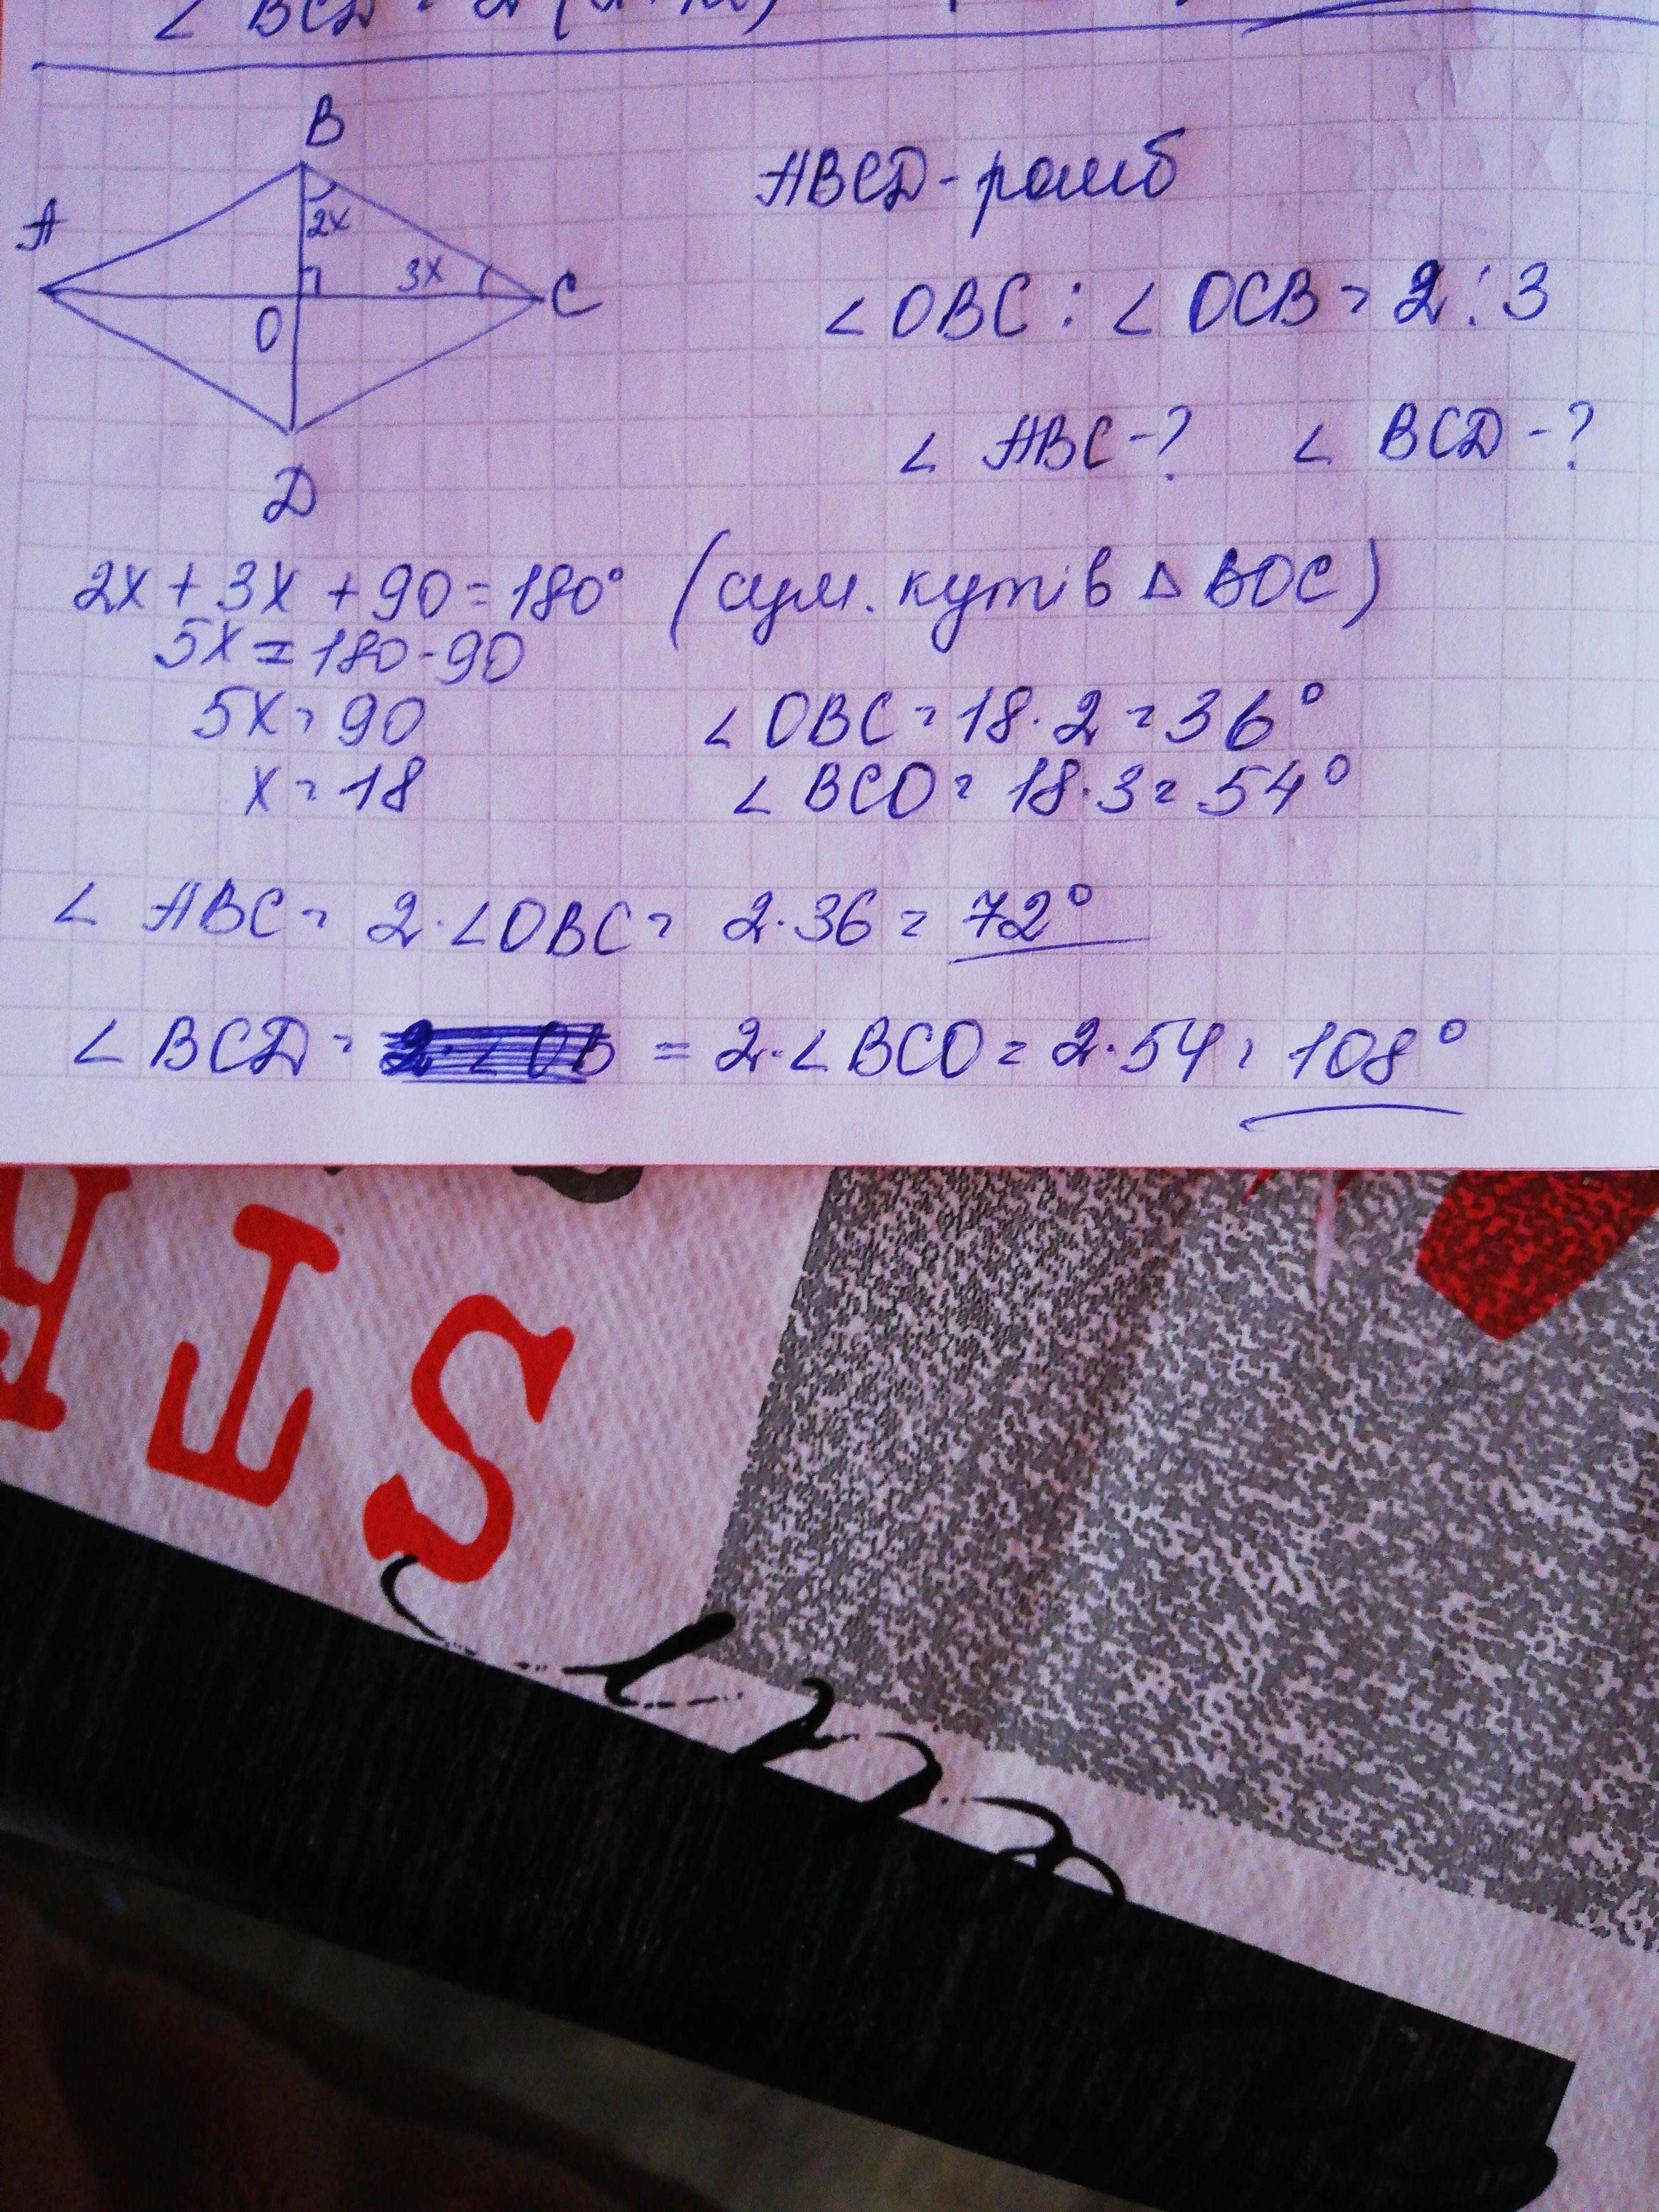 ∠ BCD = 2
B
A
2x
3x
C
O
D
ABCD - ромб
∠ OBC : ∠ OCB = 2 : 3
∠ ABC - ? ∠ BCD - ?
2x + 3x + 90 = 180° (сум. кутів Δ BOC)
5x = 180 - 90
5x = 90
∠ OBC = 18 · 2 = 36°
x = 18
∠ BCO = 18 · 3 = 54°
∠ ABC = 2 · ∠OBC = 2 · 36 = 72°
∠ BCD = = 2 · ∠ BCO = 2 · 54 = 108°
S